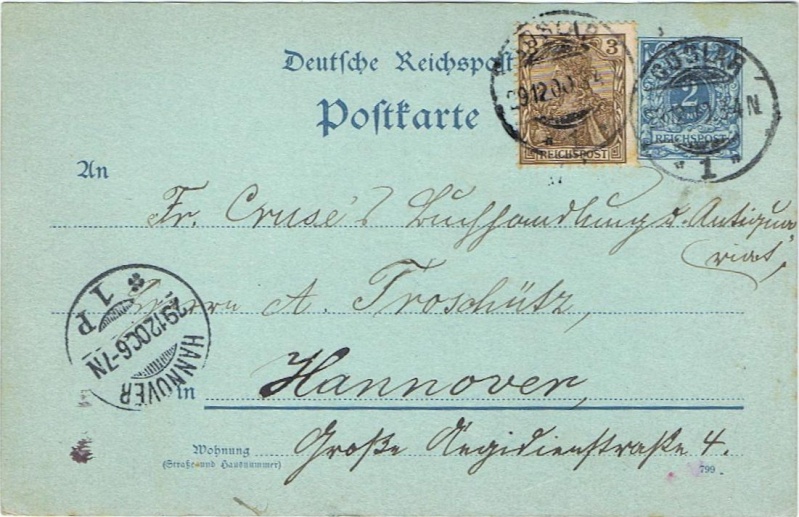 Deutsche Reichspost
Postkarte
3 3
REICHSPOST
2
REICHSPOST
GOSLAR
29 12 00
* 1 *
GOSLAR
4 N
* 1 *
An
Fr. Cruse's Buchhandlung u. Antiqua-
riat,
Herrn A. Troschütz,
HANNOVER
29 12 00 6-7N
1 P
in Hannover,
Wohnung
(Straße und Hausnummer)
Große Aegidienstraße 4.
799